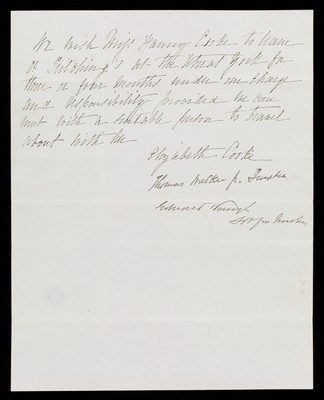 We wish Miss Fanny Cooke to leave
at the usual for
three or four months under our charge
and responsibility provided we can
meet with a suitable person to travel
about with her
Elizabeth Cooke
Thomas Walker Jr. Trustee
Edward